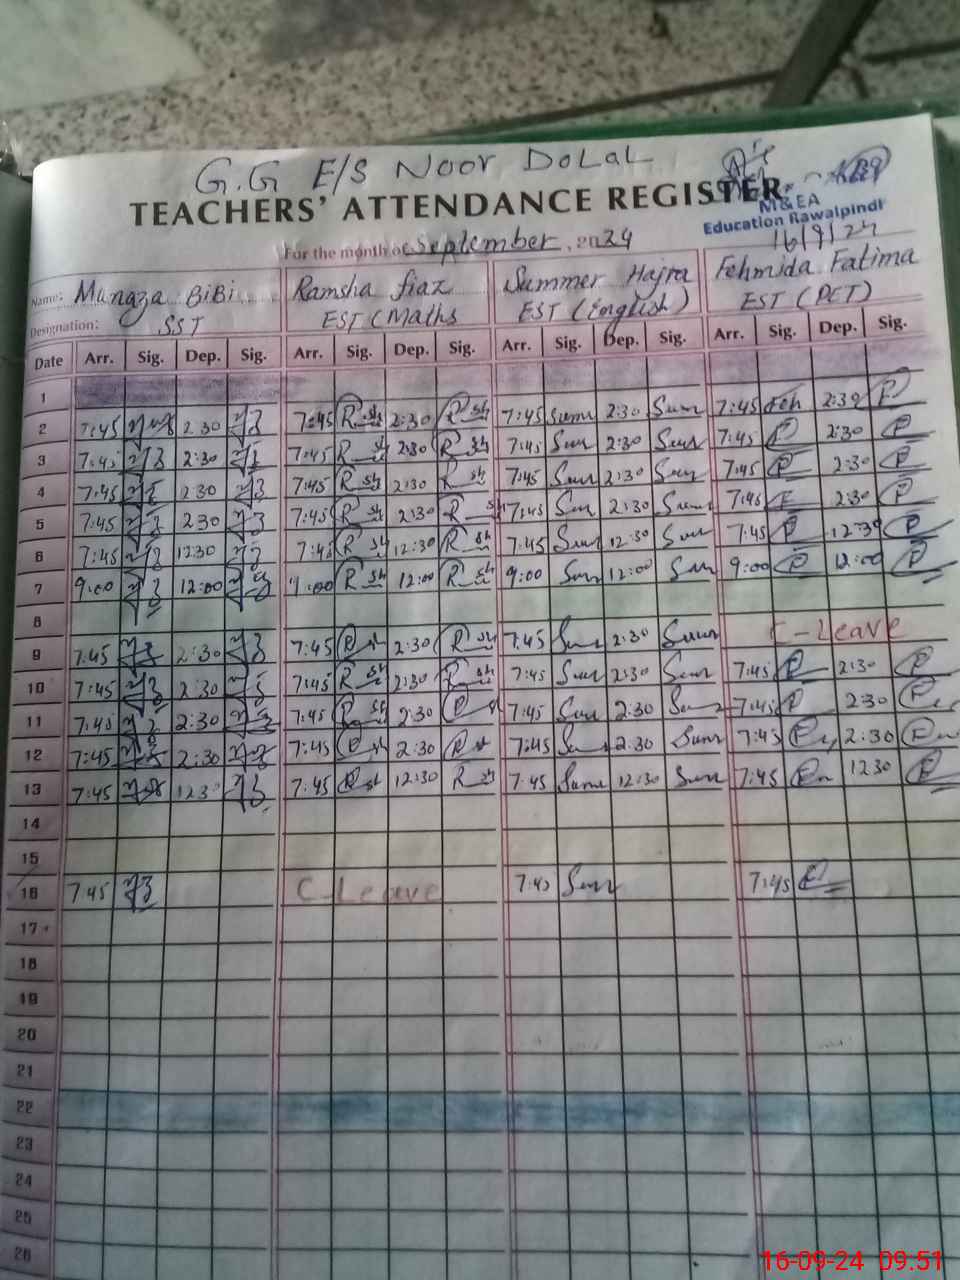 G.G E/S NOOR DOLAL
TEACHERS' ATTENDANCE REGISTER
M&EA
Education Rawalpindi
16/9/24
For the month of September, 2024
Name: Mungza BiBi Ramsha fiaz Summer Hajra Fehmida Fatima
Designation: SST EST (Maths EST (English) EST (PET)
Date Arr. Sig. Dep. Sig. Arr. Sig. Dep. Sig. Arr. Sig. Dep. Sig. Arr. Sig. Dep. Sig.
1
2 7:45 2:30 7:45 R sh 2:30 R sh 7:45 Sum 2:30 Sum 7:45 Feh 2:30 P
3 7:45 2:30 7:45 R sh 2:30 R sh 7:45 Sum 2:30 Sum 7:45 P 2:30 P
4 7:45 2:30 7:45 R sh 2:30 R sh 7:45 Sum 2:30 Sum 7:45 P 2:30 P
5 7:45 2:30 7:45 R sh 2:30 R sh 7:45 Sum 2:30 Sum 7:45 P 2:30 P
6 7:45 12:30 7:45 R sh 12:30 R sh 7:45 Sum 12:30 Sum 7:45 P 12:30 P
7 9:00 12:00 9:00 R sh 12:00 R sh 9:00 Sum 12:00 Sum 9:00 P 12:00 P
8
9 7:45 2:30 7:45 R sh 2:30 R sh 7:45 Sum 2:30 Sum C-Leave
10 7:45 2:30 7:45 R sh 2:30 R sh 7:45 Sum 2:30 Sum 7:45 P 2:30 P
11 7:45 2:30 7:45 R sh 2:30 R sh 7:45 Sum 2:30 Sum 7:45 P 2:30 P
12 7:45 2:30 7:45 R sh 2:30 R sh 7:45 Sum 2:30 Sum 7:45 P 2:30 P
13 7:45 12:30 7:45 R sh 12:30 R sh 7:45 Sum 12:30 Sum 7:45 P 12:30 P
14
15
16 7:45 C-Leave 7:45 Sum 7:45 P
17
18
19
20
21
22
23
24
25
26
16-09-24 09.51